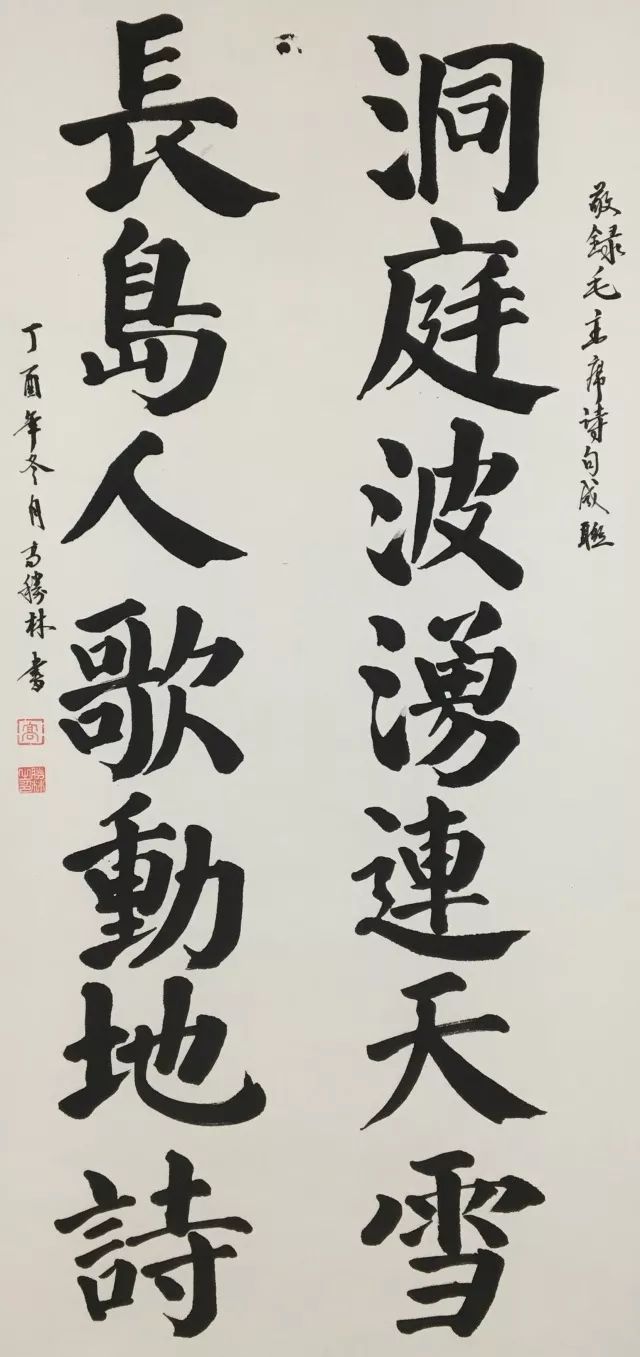 敬録毛主席詩句成聯
洞庭波湧連天雪
長島人歌動地詩
丁酉年冬月高勝林書
高